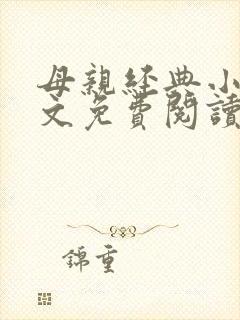 母親經典小
文免費閱讀
錦重